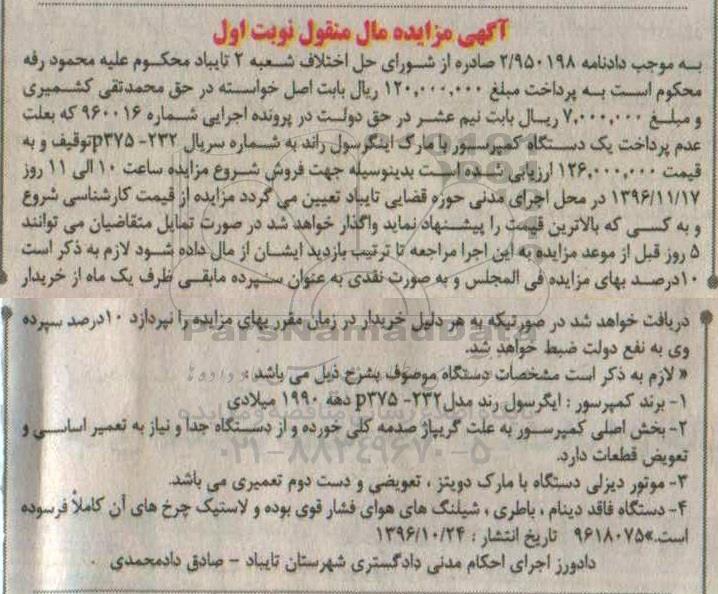 آگهی مزایده مال منقول نوبت اول
به موجب دادنامه ۲/۹۵۰۱۹۸ صادره از شورای حل اختلاف شعبه ۲ تایباد محکوم علیه محمود رفه
محکوم است به پرداخت مبلغ ۱۲۰,۰۰۰,۰۰۰ ریال بابت اصل خواسته در حق محمدتقی کشمیری
و مبلغ ۷,۰۰۰,۰۰۰ ریال بابت نیم عشر در حق دولت در پرونده اجرایی شماره ۹۶۰۰۱۶ که بعلت
عدم پرداخت یک دستگاه کمپرسور با مارک اینگرسول راند به شماره سریال ۲۳۲- p۳۷۵توقیف و به
قیمت ۱۲۶,۰۰۰,۰۰۰ ارزیابی شده است بدینوسیله جهت فروش شروع مزایده ساعت ۱۰ الی ۱۱ روز
۱۳۹۶/۱۱/۱۷ در محل اجرای مدنی حوزه قضایی تایباد تعیین می گردد مزایده از قیمت کارشناسی شروع
و به کسی که بالاترین قیمت را پیشنهاد نماید واگذار خواهد شد در صورت تمایل متقاضیان می توانند
۵ روز قبل از موعد مزایده به این اجرا مراجعه تا ترتیب بازدید ایشان از مال داده شود لازم به ذکر است
۱۰درصد بهای مزایده فی المجلس و به صورت نقدی به عنوان سپرده مابقی ظرف یک ماه از خریدار
دریافت خواهد شد در صورتیکه به هر دلیل خریدار در زمان مقرر بهای مزایده را نپردازد ۱۰درصد سپرده
وی به نفع دولت ضبط خواهد شد.
« لازم به ذکر است مشخصات دستگاه موصوف بشرح ذیل می باشد :
۱- برند کمپرسور : ایگرسول رند مدل۲۳۲- p۳۷۵ دهه ۱۹۹۰ میلادی
۲- بخش اصلی کمپرسور به علت گریپاژ صدمه کلی خورده و از دستگاه جدا و نیاز به تعمیر اساسی و
تعویض قطعات دارد.
۳- موتور دیزلی دستگاه با مارک دویتز ، تعویضی و دست دوم تعمیری می باشد.
۴- دستگاه فاقد دینام ، باطری ، شیلنگ های هوای فشار قوی بوده و لاستیک چرخ های آن کاملاً فرسوده
است.» ۹۶۱۸۰۷۵ تاریخ انتشار : ۱۳۹۶/۱۰/۲۴
دادورز اجرای احکام مدنی دادگستری شهرستان تایباد - صادق دادمحمدی
ParsNamadData
۰۲۱-۸۸۳۴۹۶۷۰-۵